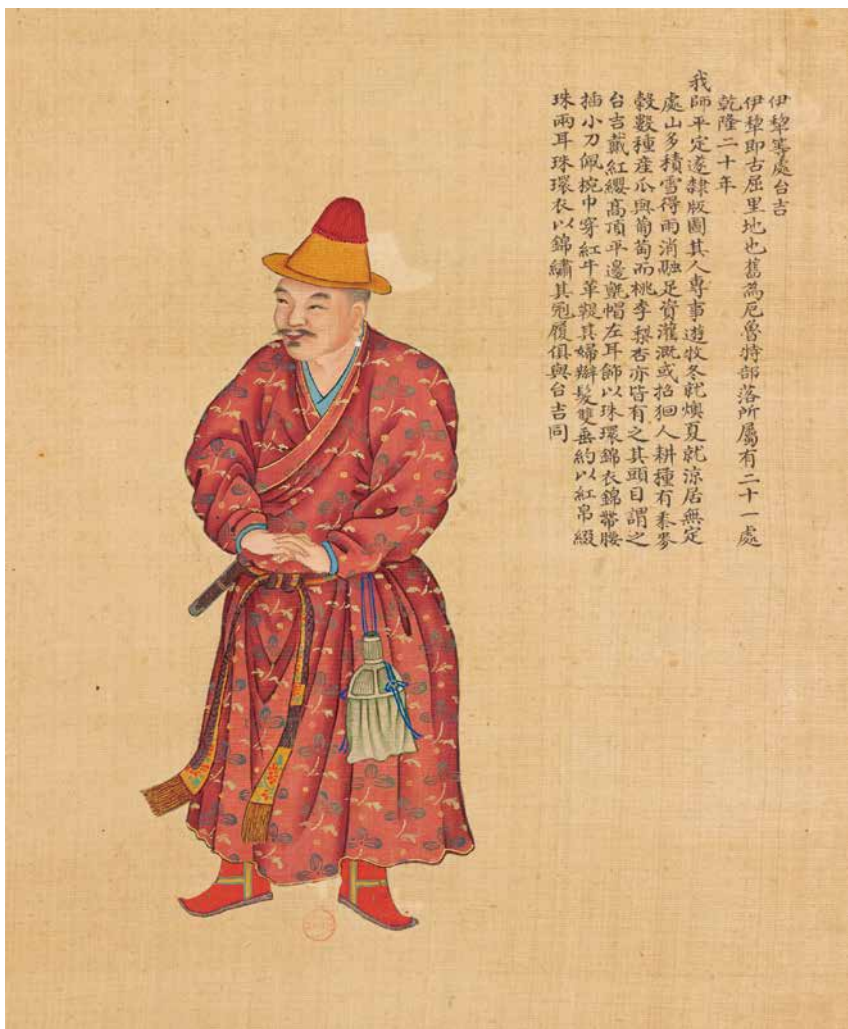 伊犂等處台吉
伊犂即古屈里地也舊為厄魯特部落所屬有二十一處
乾隆二十年
我師平定遂隸版圖其人專事遊牧冬就燠夏就涼居無定
處山多積雪得雨消融足資灌溉或招人耕種有黍麥
穀數種產瓜與葡萄而桃李棃杏亦皆有之其頭目謂之
台吉戴紅纓高頂平邊氊帽左耳飾以珠環錦衣錦帶腰
插小刀佩椀巾穿紅牛革鞮其婦辮髮雙垂約以紅帛綴
珠兩耳珠環衣以錦繡其冠履俱與台吉同